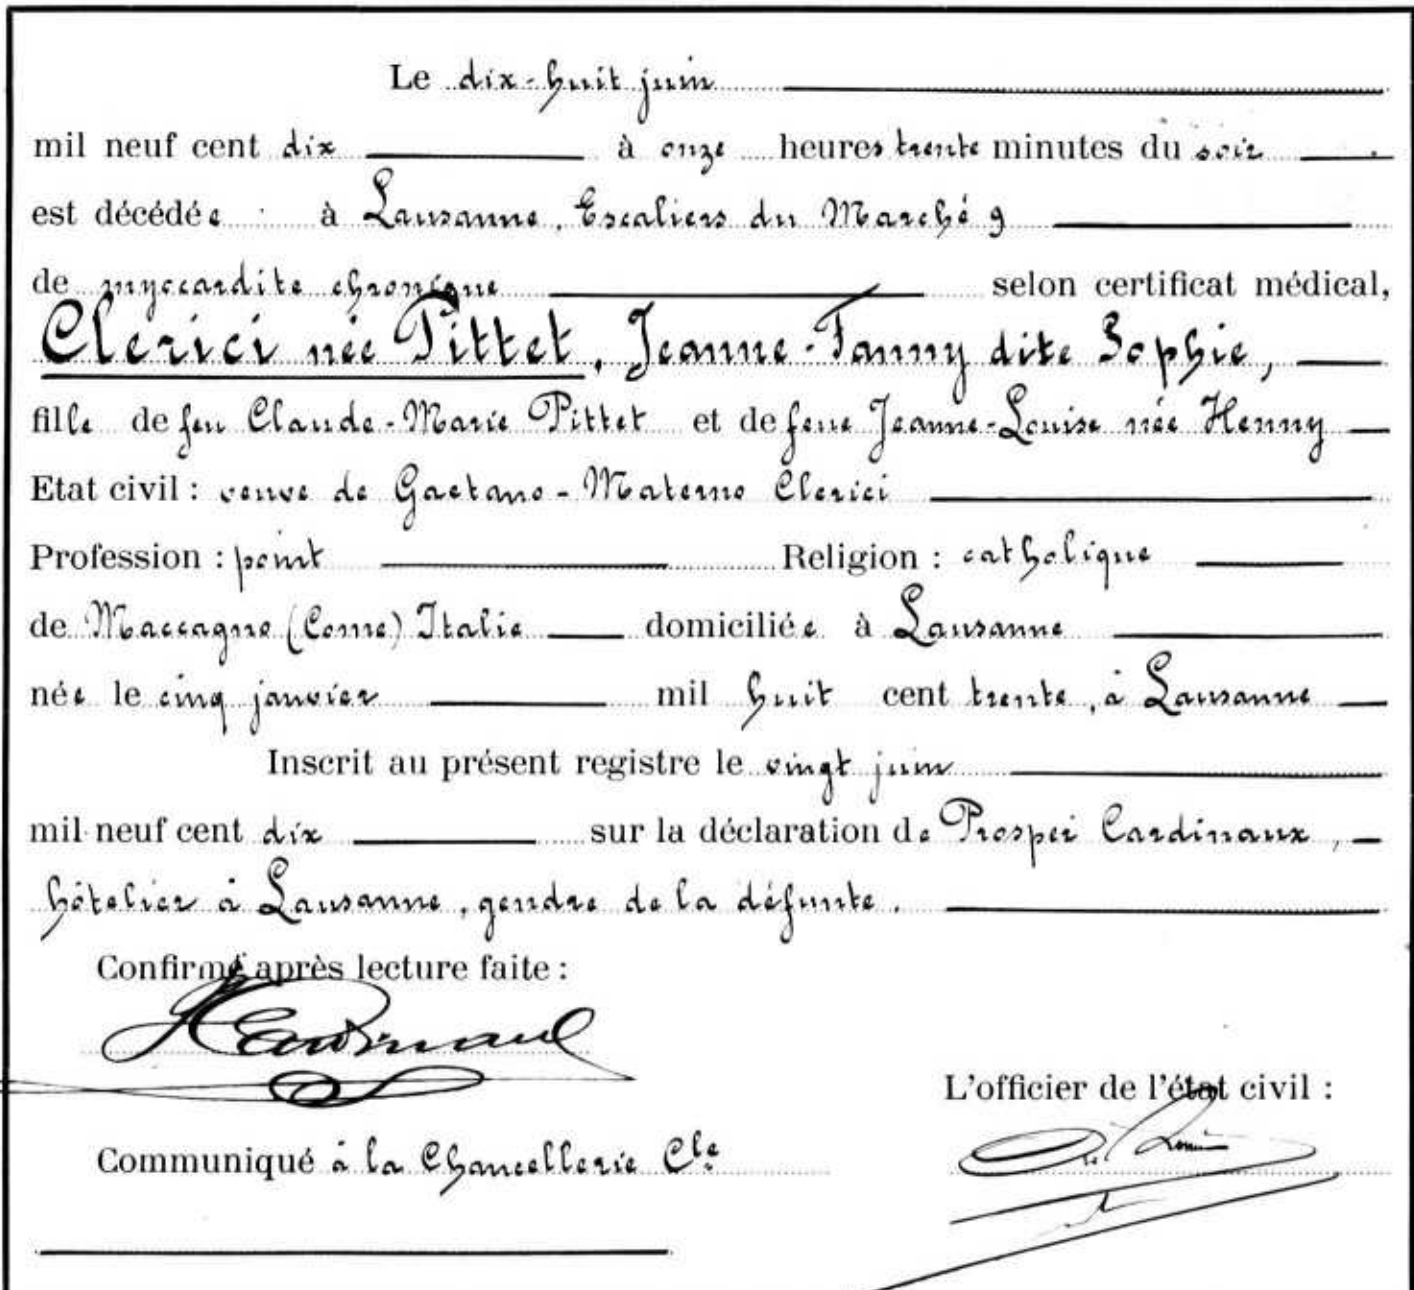 Le dix-huit juin
mil neuf cent dix à onze heures trente minutes du soir
est décédée à Lausanne, Escaliers du Marché 9
de myocardite chronique selon certificat médical,
Clerici née Pittet, Jeanne-Fanny dite Sophie,
fille de feu Claude-Marie Pittet et de feue Jeanne-Louise née Henny
Etat civil : veuve de Gaetano-Materno Clerici
Profession : point Religion : catholique
de Maccagno (Come) Italie domiciliée à Lausanne
née le cinq janvier mil huit cent trente, à Lausanne
Inscrit au présent registre le vingt juin
mil neuf cent dix sur la déclaration de Prosper Cardinaux,
hôtelier à Lausanne, gendre de la défunte.
Confirmé après lecture faite :
Cardinaux
L'officier de l'état civil :
Communiqué à la Chancellerie Cle